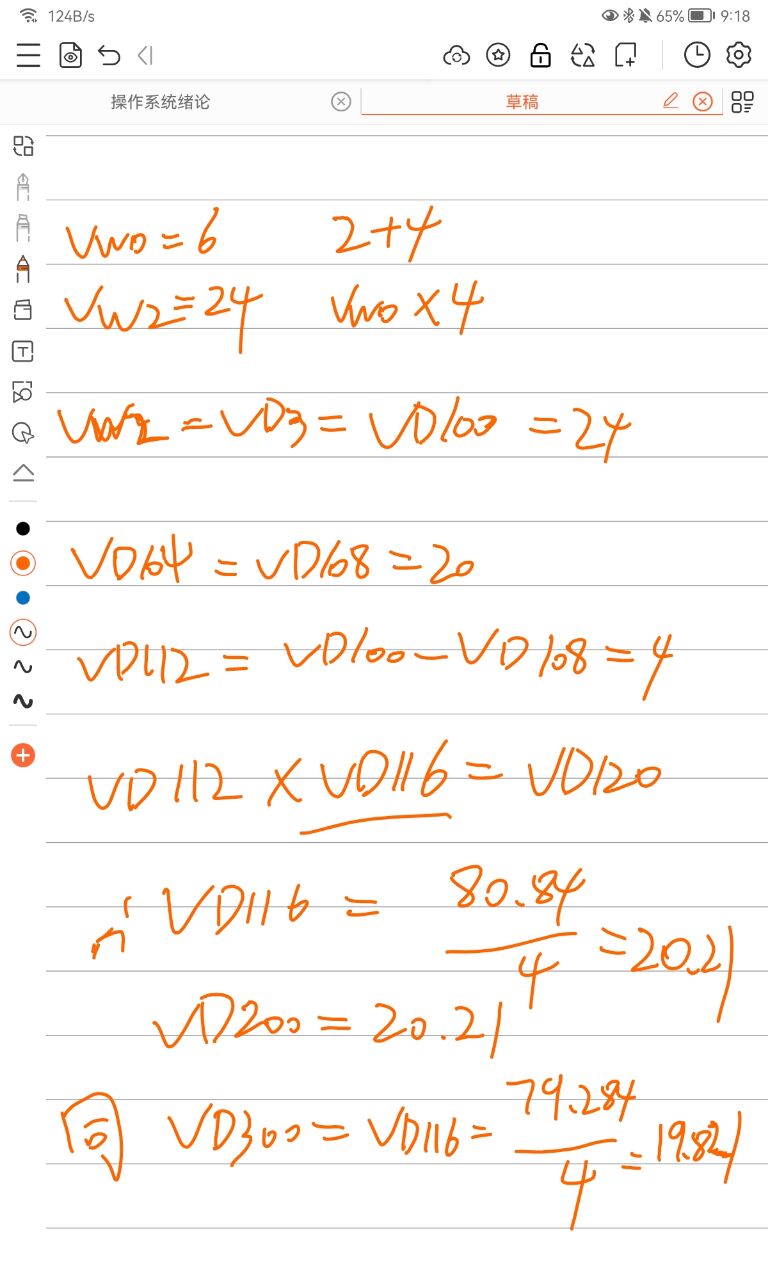 124B/s 65% 9:18
操作系统绪论 草稿
VW0=6 2+4
VW2=24 VW0×4
VW2=VD3=VD100=24
VD64=VD108=20
VD112=VD100-VD108=4
VD112×VD116=VD120
VD116=80.84/4=20.21
VD200=20.21
同 VD300=VD116=79.284/4=19.821